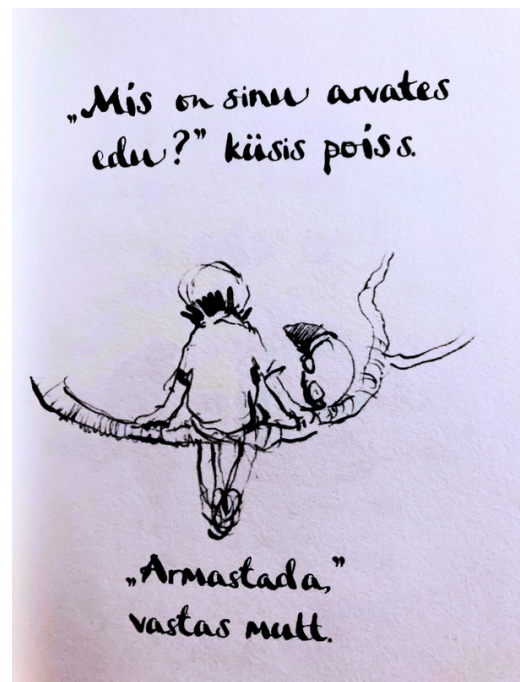 „Mis on sinu arvates
edu?” küsis poiss.
„Armastada,”
vastas mutt.